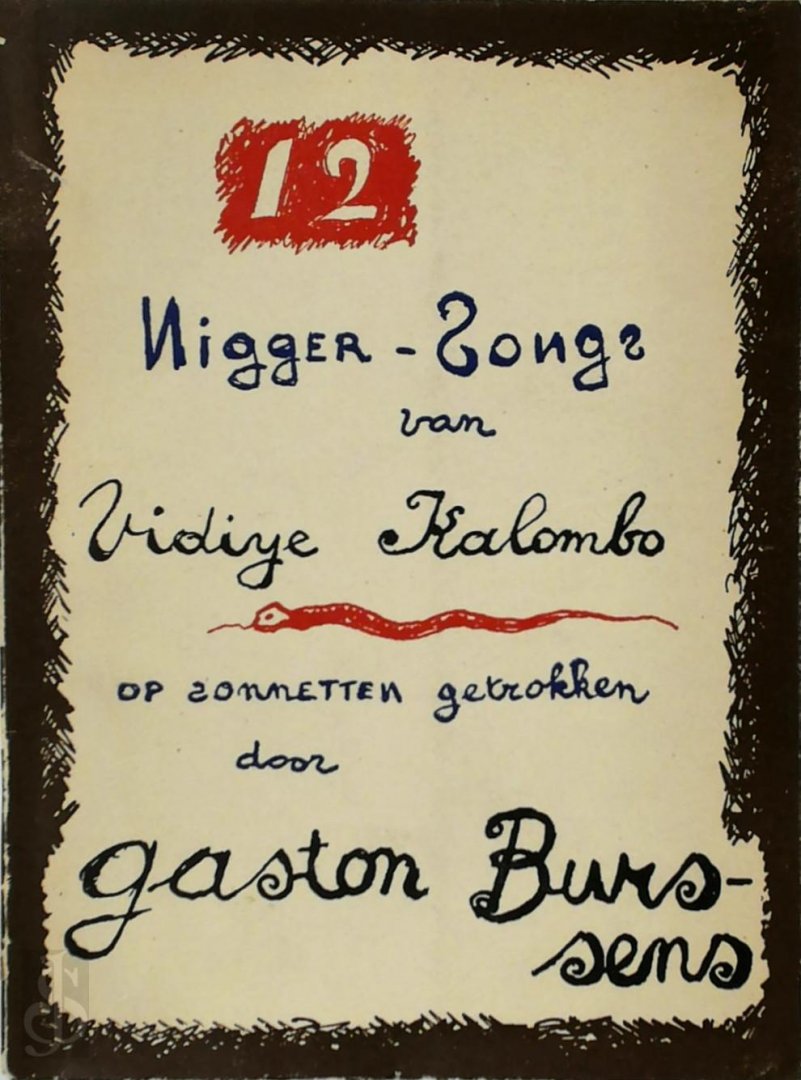 12
Nigger-Songs
van
Vidiye Kalombo
op sonnetten getrokken
door
gaston Burs-
sens